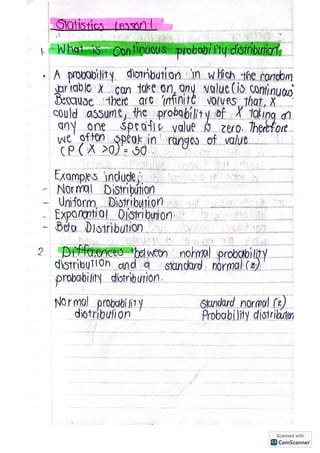 Statistics Lesson 1
1. What is Continuous probability distribution.
• A probability distribution in which the random
variable X can take on any value (is continuous)
Because there are infinite values that X
could assume, the probability of X taking on
any one specific value is zero. Therefore
we often speak in ranges of value
(P(X >0) = 50.
Examples include;
- Normal Distribution
- Uniform Distribution
- Exponential Distribution
- Beta Distribution
2. Differences between normal probability
distribution and a standard normal (z)
probability distribution.
Normal probability Standard normal (z)
distribution Probability distribution
Scanned with
CS CamScanner